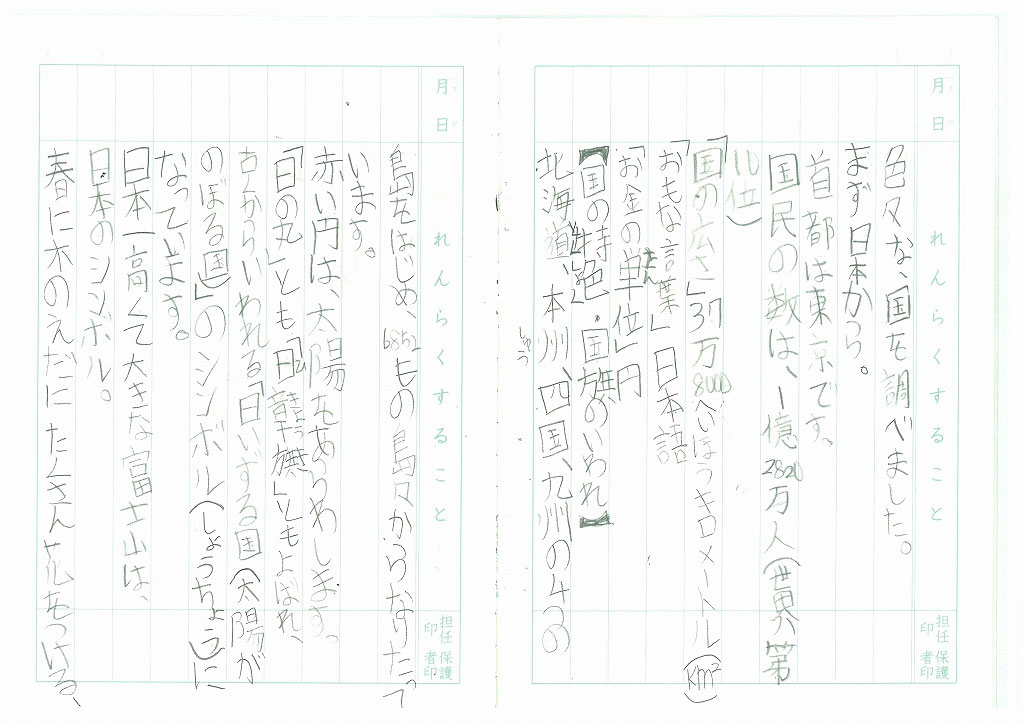 月 日
れんらくすること
担任印
保護者印
色々な、国を調べました。
まず日本から。
首都は東京です。
国民の数は、1億2820万人(世界第
10位)
「国の広さ」37万8000へいほうキロメートル(km²)
「おもな言葉」日本語
「お金の単位」円
【国の特色・国旗のいわれ】
北海道、本州、四国、九州の4つの
月 日
れんらくすること
担任印
保護者印
島をはじめ、6852もの島々からなりたって
います。
赤い円は、太陽をあらわします。
「日の丸」とも「日章旗」ともよばれ、
古くからいわれる「日いずる国(太陽が
のぼる国)」のシンボル(しょうちょう)に
なっています。
日本一高くて大きな富士山は、
日本のシンボル。
春に木のえだにたくさん花をつける、